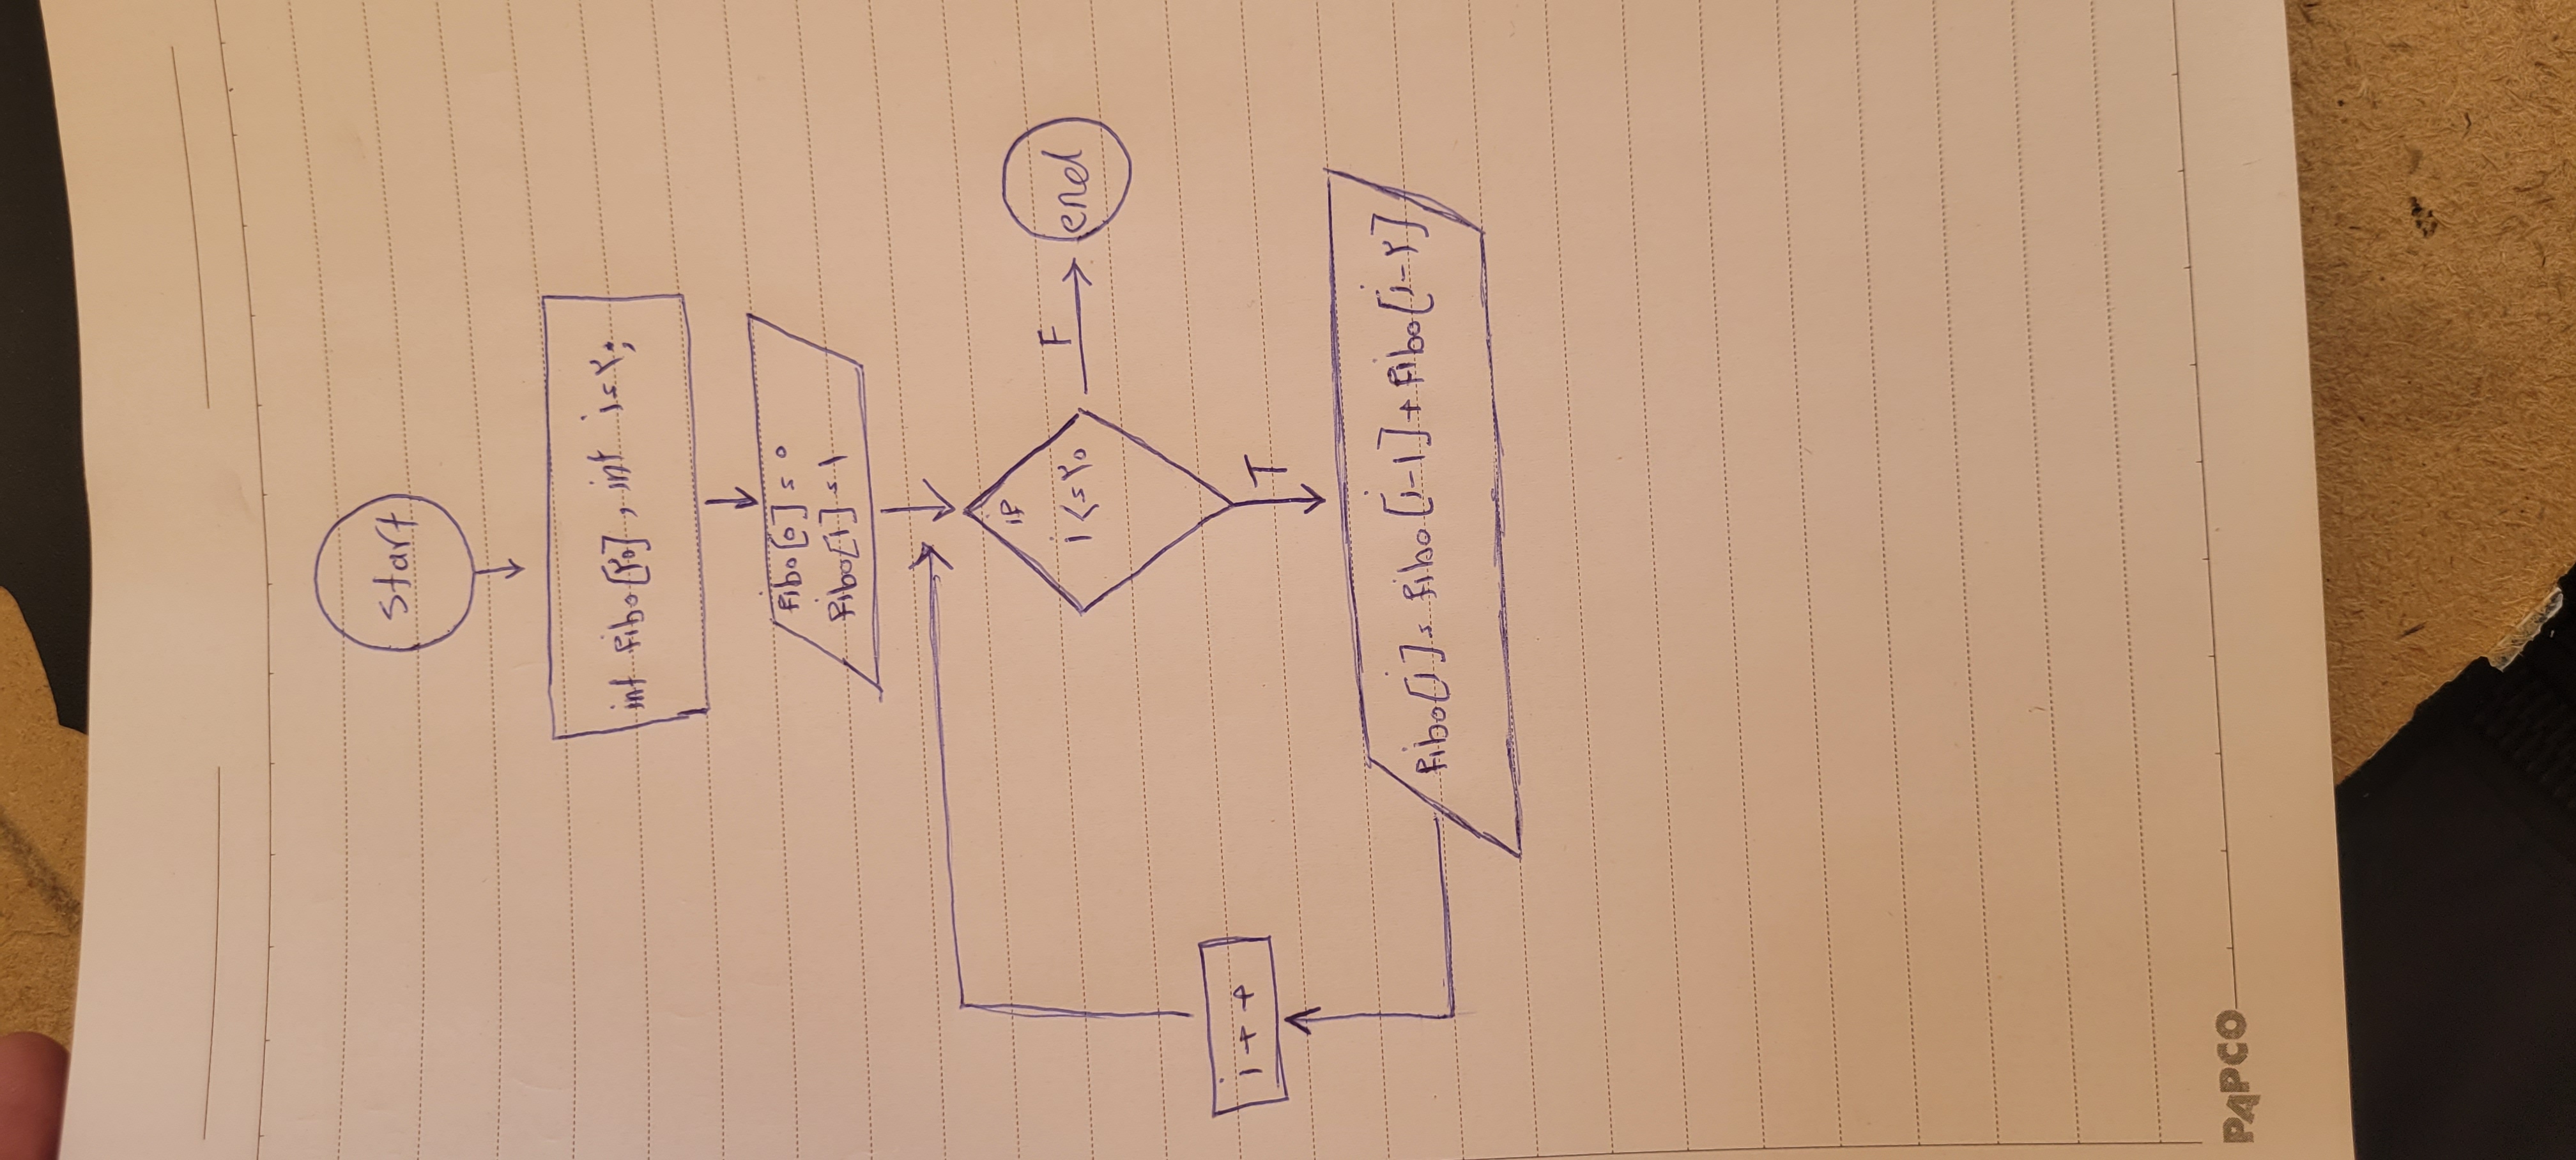 start
int fibo[۲۰], int i=۲;
fibo[۰] = ۰
fibo[۱] = ۱
if
i <= ۲۰
F
end
i++
T
fibo[i] = fibo[i-۱] + fibo[i-۲]
PAPCO